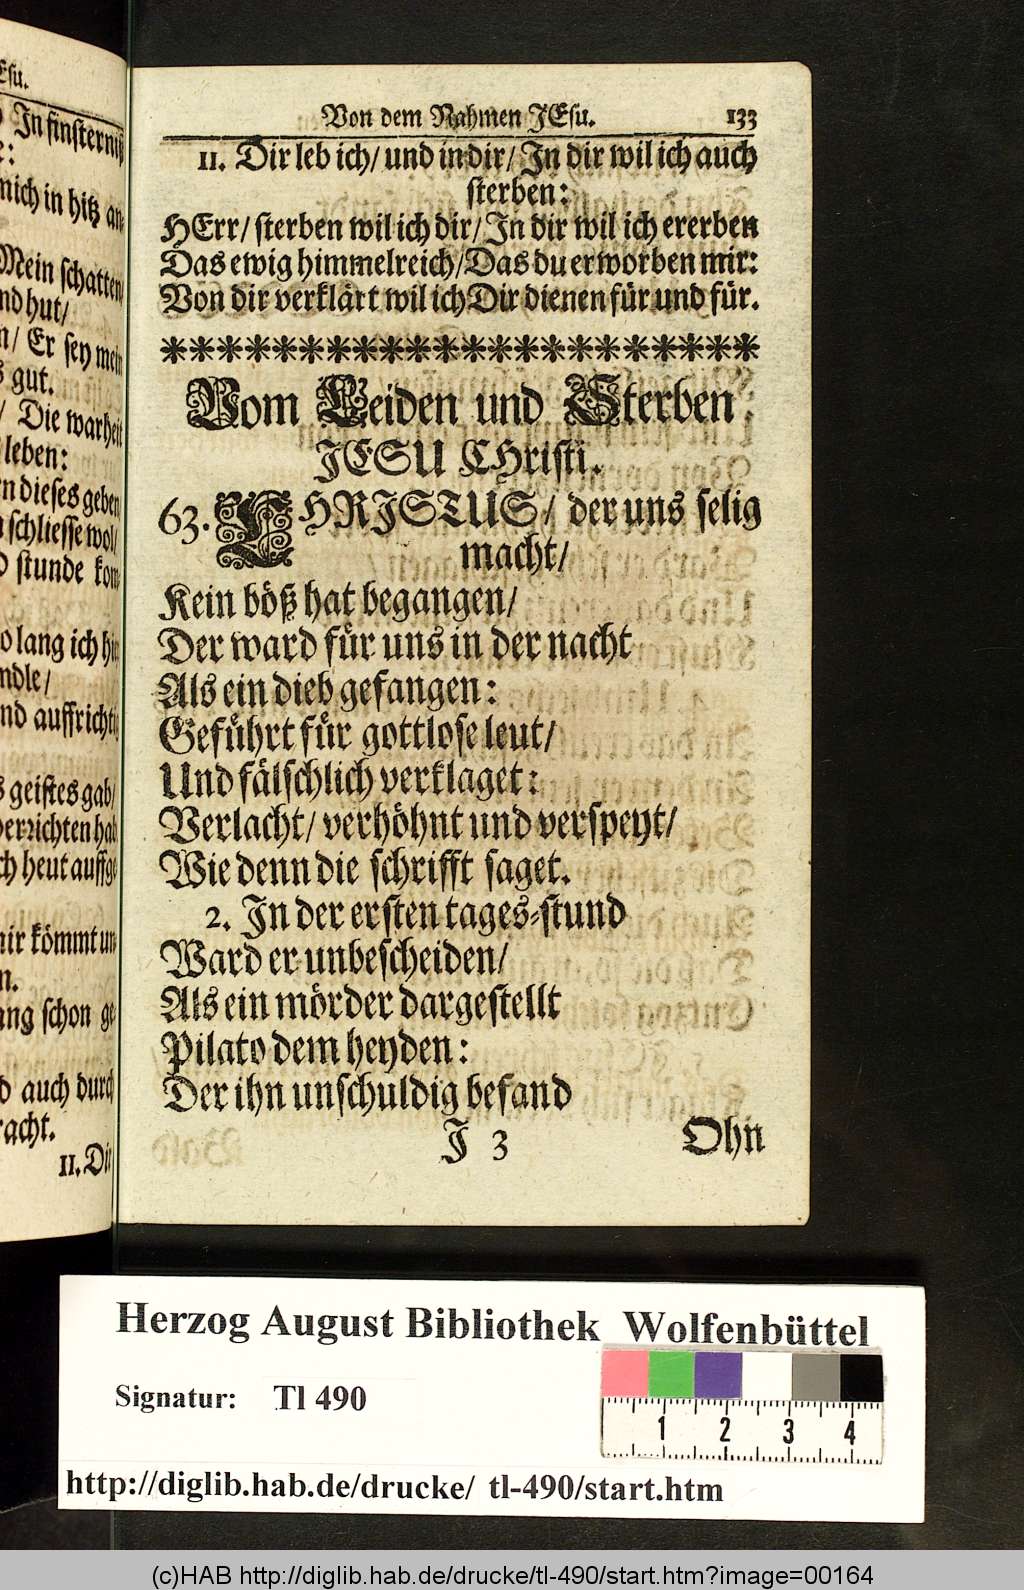 Esu.
In finsterniß
mich in hitz an-
Mein schatten/
nd hut/
n/ Er sey mein
s gut.
/ Die warheit
leben:
rn dieses geben
schliesse wol/
stunde kom-
o lang ich hin
ndle/
nd auffrichtig
s geistes gab/
verrichten hab
ch heut auffge-
mir kömmt un-
n.
ang schon ge-
d auch durch
racht.
11. Dir
Von dem Nahmen JEsu. 133
11. Dir leb ich/ und in dir/ In dir wil ich auch
sterben:
HErr/ sterben wil ich dir/ In dir wil ich ererben
Das ewig himmelreich/ Das du erworben mir:
Von dir verklärt wil ich Dir dienen für und für.
**********************
Vom Leiden und Sterben
JESU CHristi.
63. CHRISTUS/ der uns selig
macht/
Kein böß hat begangen/
Der ward für uns in der nacht
Als ein dieb gefangen:
Geführt für gottlose leut/
Und fälschlich verklaget:
Verlacht/ verhöhnt und verspeyt/
Wie denn die schrifft saget.
2. In der ersten tages-stund
Ward er unbescheiden/
Als ein mörder dargestellt
Pilato dem heyden:
Der ihn unschuldig befand
J 3 Ohn
Herzog August Bibliothek Wolfenbüttel
Signatur: Tl 490
1 2 3 4
http://diglib.hab.de/drucke/ tl-490/start.htm
(c)HAB http://diglib.hab.de/drucke/tl-490/start.htm?image=00164